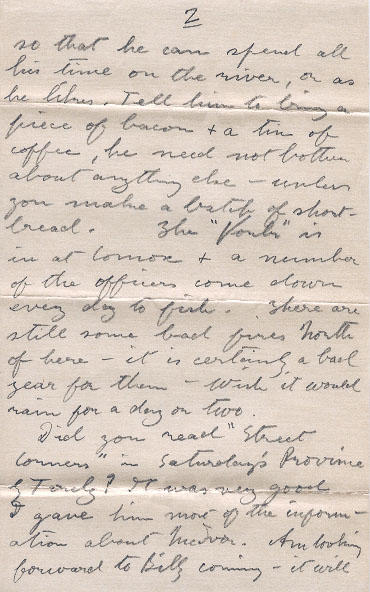 2
so that he can spend all
his time on the river, or as
he likes. Tell him to bring a
piece of bacon + a tin of
coffee, he need not bother
about anything else - unless
you make a batch of short-
bread. The "                " is
in at Comox + a number
of the officers come down
every day to fish. There are
still some bad fires North
of here - it is certainly a bad
year for them - wish it would
rain for a day or two.
Did you read "Street
Corners" in Saturday's Province
by          ? It was very good
I gave him most of the inform-
ation about          . Am looking
forward to Billy coming - it will